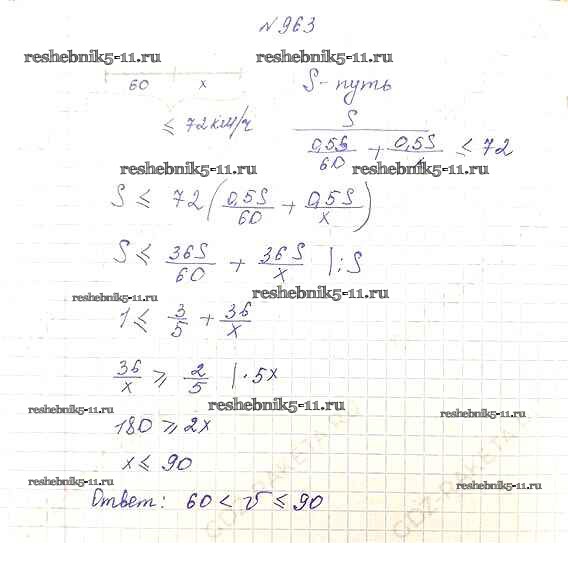 №963
reshebnik5-11.ru reshebnik5-11.ru
60 x S - путь
≤ 72 км/ч S / (0,5S/60 + 0,5S/) ≤ 72
reshebnik5-11.ru reshebnik5-11.ru
S ≤ 72 (0,5S/60 + 0,5S/x)
S ≤ 36S/60 + 36S/x |:S
reshebnik5-11.ru reshebnik5-11.ru
1 ≤ 3/5 + 36/x
36/x ≥ 2/5 |·5x
reshebnik5-11.ru
reshebnik5-11.ru reshebnik5-11.ru
180 ≥ 2x
x ≤ 90
reshebnik5-11.ru reshebnik5-11.ru
Ответ: 60 < v ≤ 90
GDZ-RAKETA.RU
GDZ-RAKETA.RU